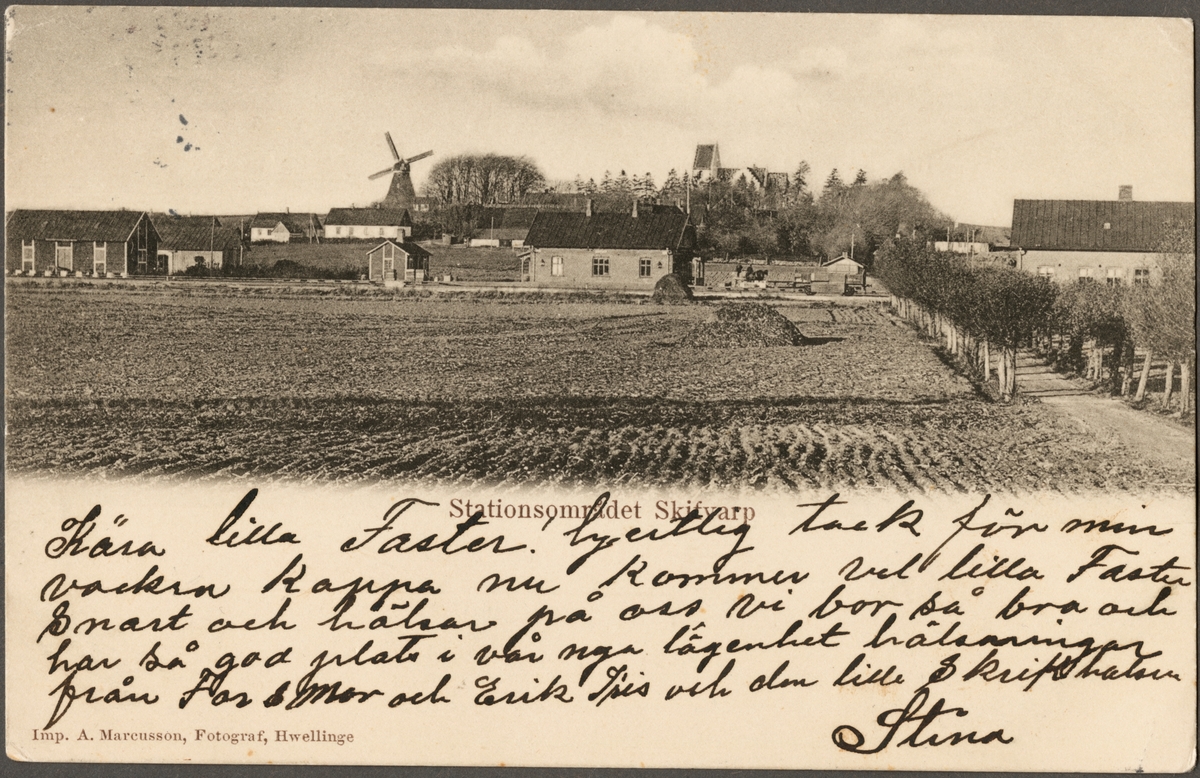 Stationsområdet Skifvarp
Kära lilla Faster! hjertlig tack för min
vackra kappa nu kommer vel lilla Faster
snart och hälsar på oss vi bor så bra och
har så god plats i vår nya lägenhet hälsningar
från Far & Mor och Erik och den lille
Stina
Imp. A. Marcusson, Fotograf, Hwellinge